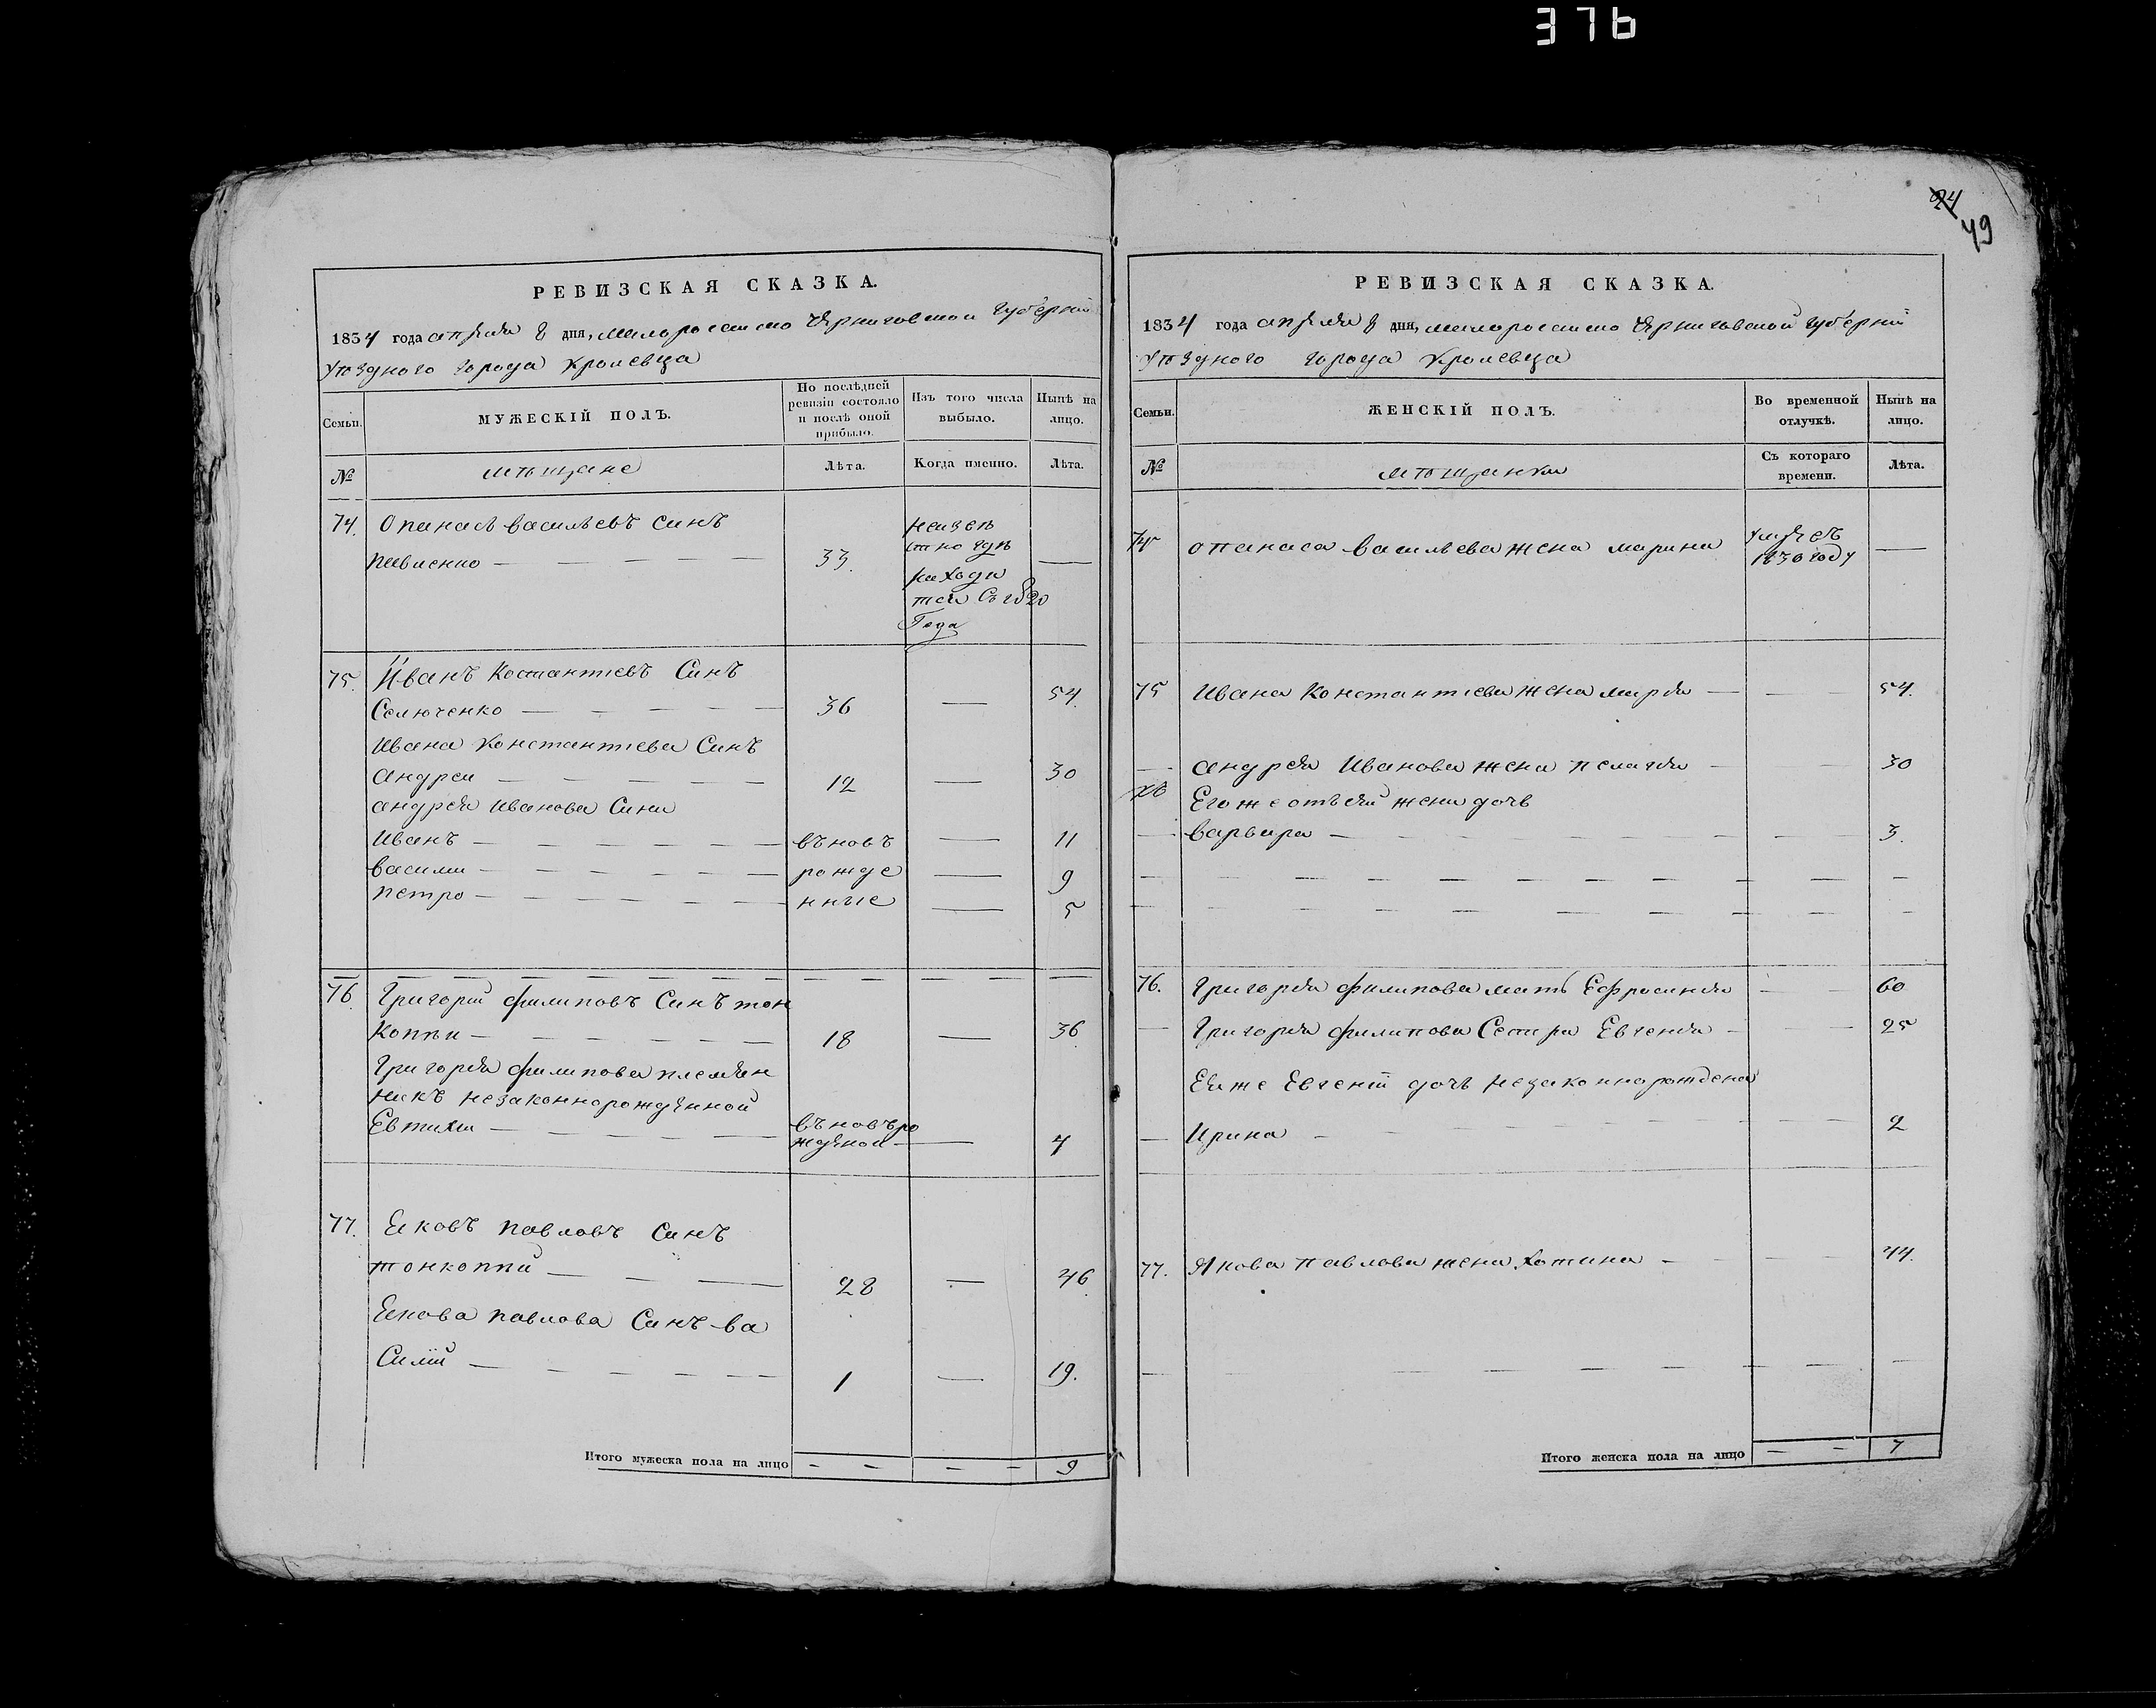 376
24
49
РЕВИЗСКАЯ СКАЗКА.
1834 года апреля 8 дня, Малоросийско Черниговской Губерний
Уѣздного города Кролевца
Семьи.
МУЖЕСКІЙ ПОЛЪ.
По послѣдней ревизіи состояло и послѣ оной прибыло.
Изъ того числа выбыло.
Нынѣ на лицо.
№
мѣщане
Лѣта.
Когда именно.
Лѣта.
74. Опанасъ васильевъ синъ
33.
неизвѣ
стно гдѣ
находи
тся Съ 1820
Года
—
75. Иванъ Костантіевъ Синъ
Селюченко — 36 — 54.
Ивана Константіева Синъ
андреи — 12 — 30
андрея Иванова Сини
Иванъ — въновъ — 11
васили — рожде — 9
петро — нние — 5
76 Григорий филиповъ Синъ тон
коппи — 18 — 36
Григория филипова племян
никъ незаконнорожденной
Евтихи — въновъро
жденой — 4
77. Еяковъ павловъ Синъ
тонкоппий — 28 — 46
Еякова павлова Синъ ва
Силий — 1 — 19.
Итого мужеска пола на лицо — — — — 9
РЕВИЗСКАЯ СКАЗКА.
1834 года апреля 8 дня, малоросийско Черниговской губерний
Уѣздного города Кролевца
Семьи.
ЖЕНСКІЙ ПОЛЪ.
Во временной отлучкѣ.
Нынѣ на лицо.
№
мѣщанки
Съ котораго времени.
Лѣта.
74 опанаса васильева жена марина
умреъ
1830 году
—
75 Ивана Константиева жена марья — 54.
андрея Иванова жена пелагея — 30
Его же отъ сей жени дочъ
варвара — 3.
76. Григорья филипова мать Ефросиния — 60
— Григорья филипова Сестра Евгения — 25
Ея же Евгений дочъ незаконнорождена
— Ирина — 2
77. Якова павлова жена хотина — 44.
Итого женска пола на лицо — — 7